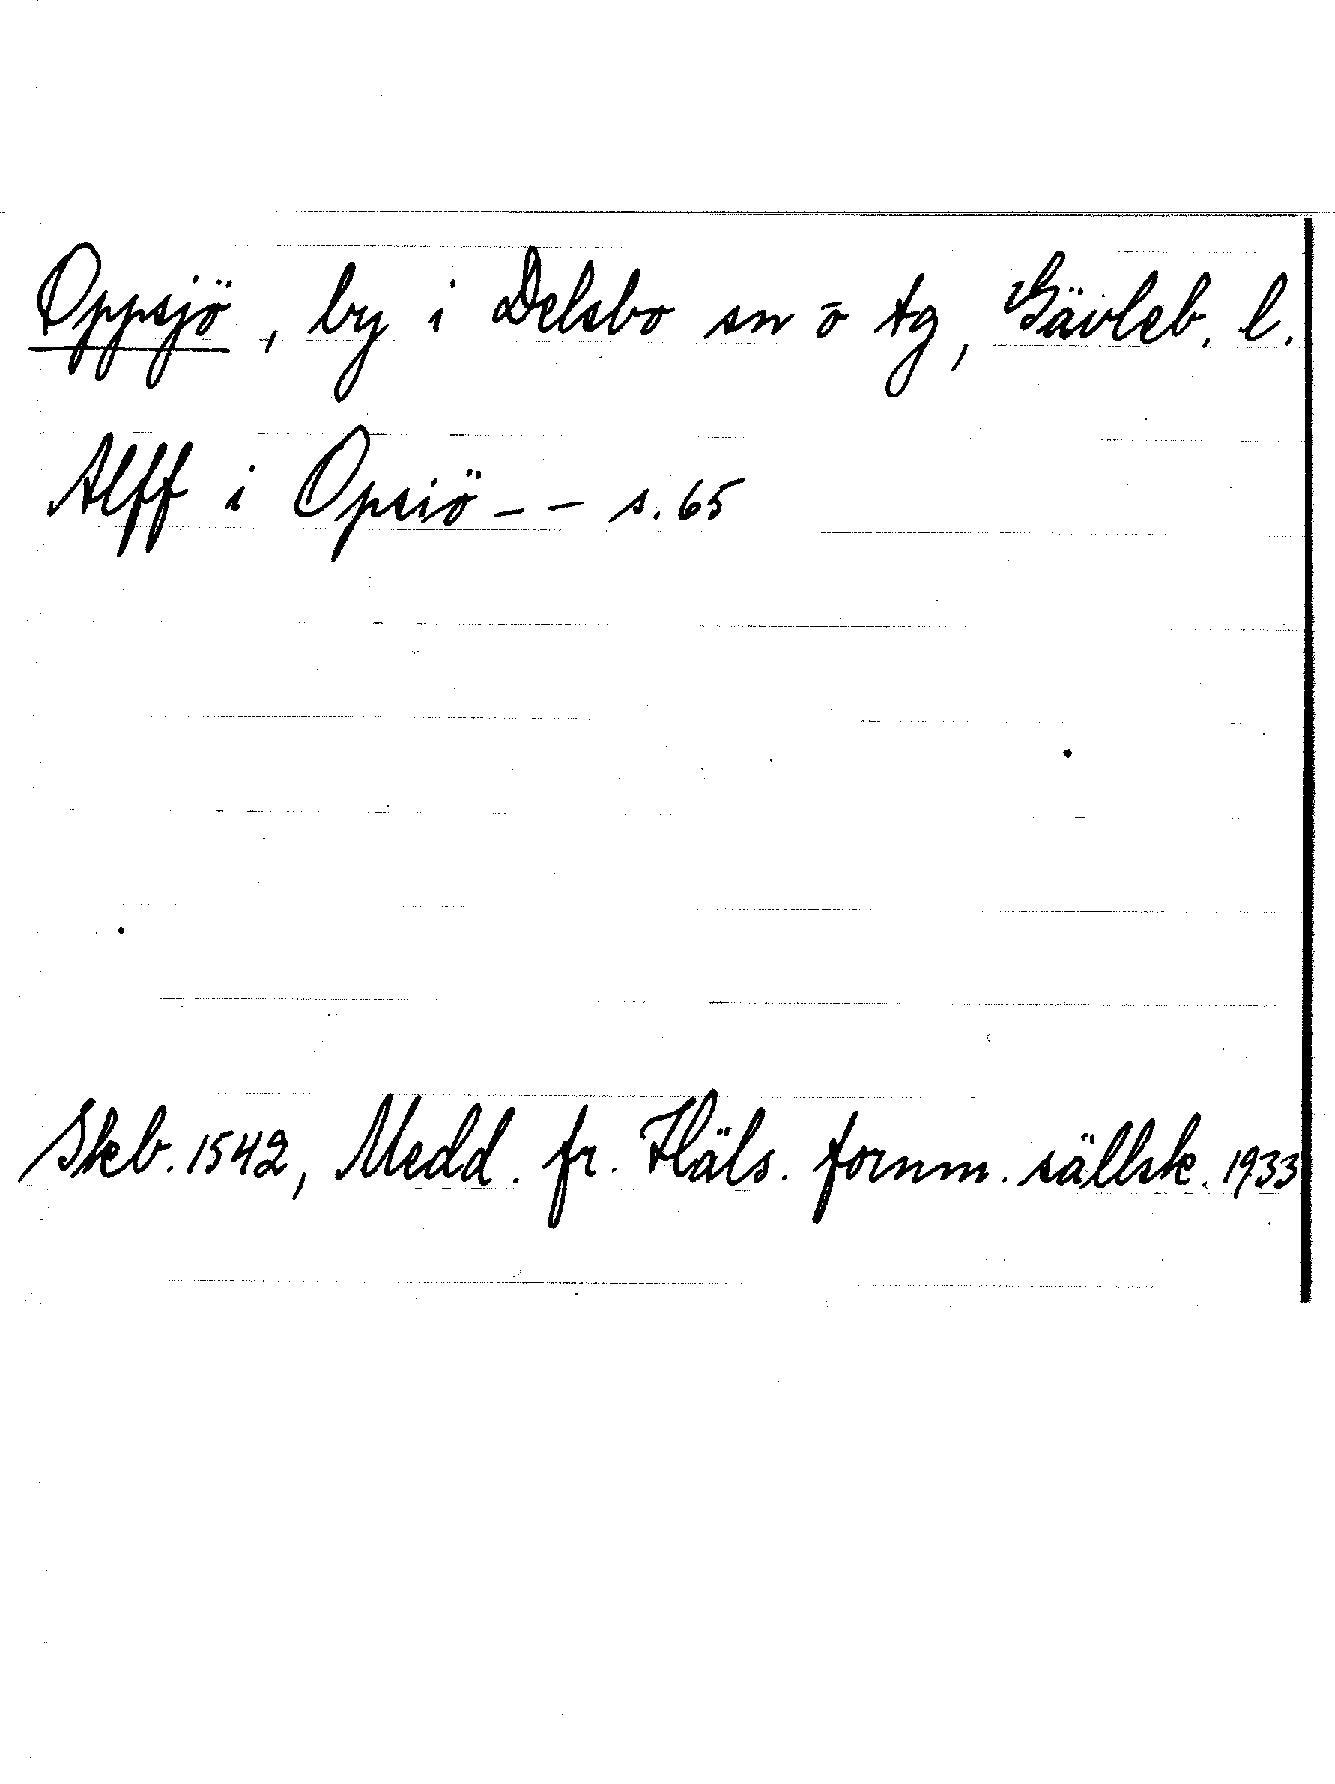 Oppsjö, by i Delsbo sn o tg, Gävleb. l.
Alff i Opsiö - - s. 65
Skb. 1542, Medd. fr. Häls. fornm. sällsk. 1933